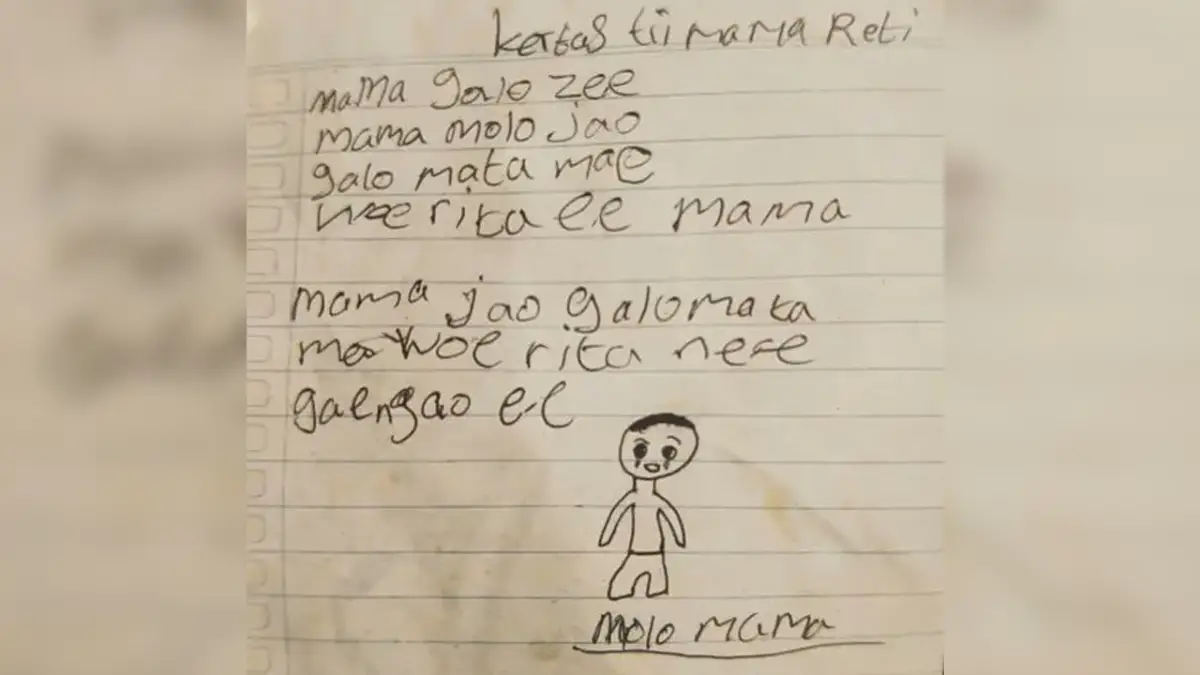 kertas tii mama Reti
mama galo zee
mama molo jao
galo mata mae
woe rita ee mama
mama jao galo mata
mae woe rita ne'e
gae ngao e-e
molo mama